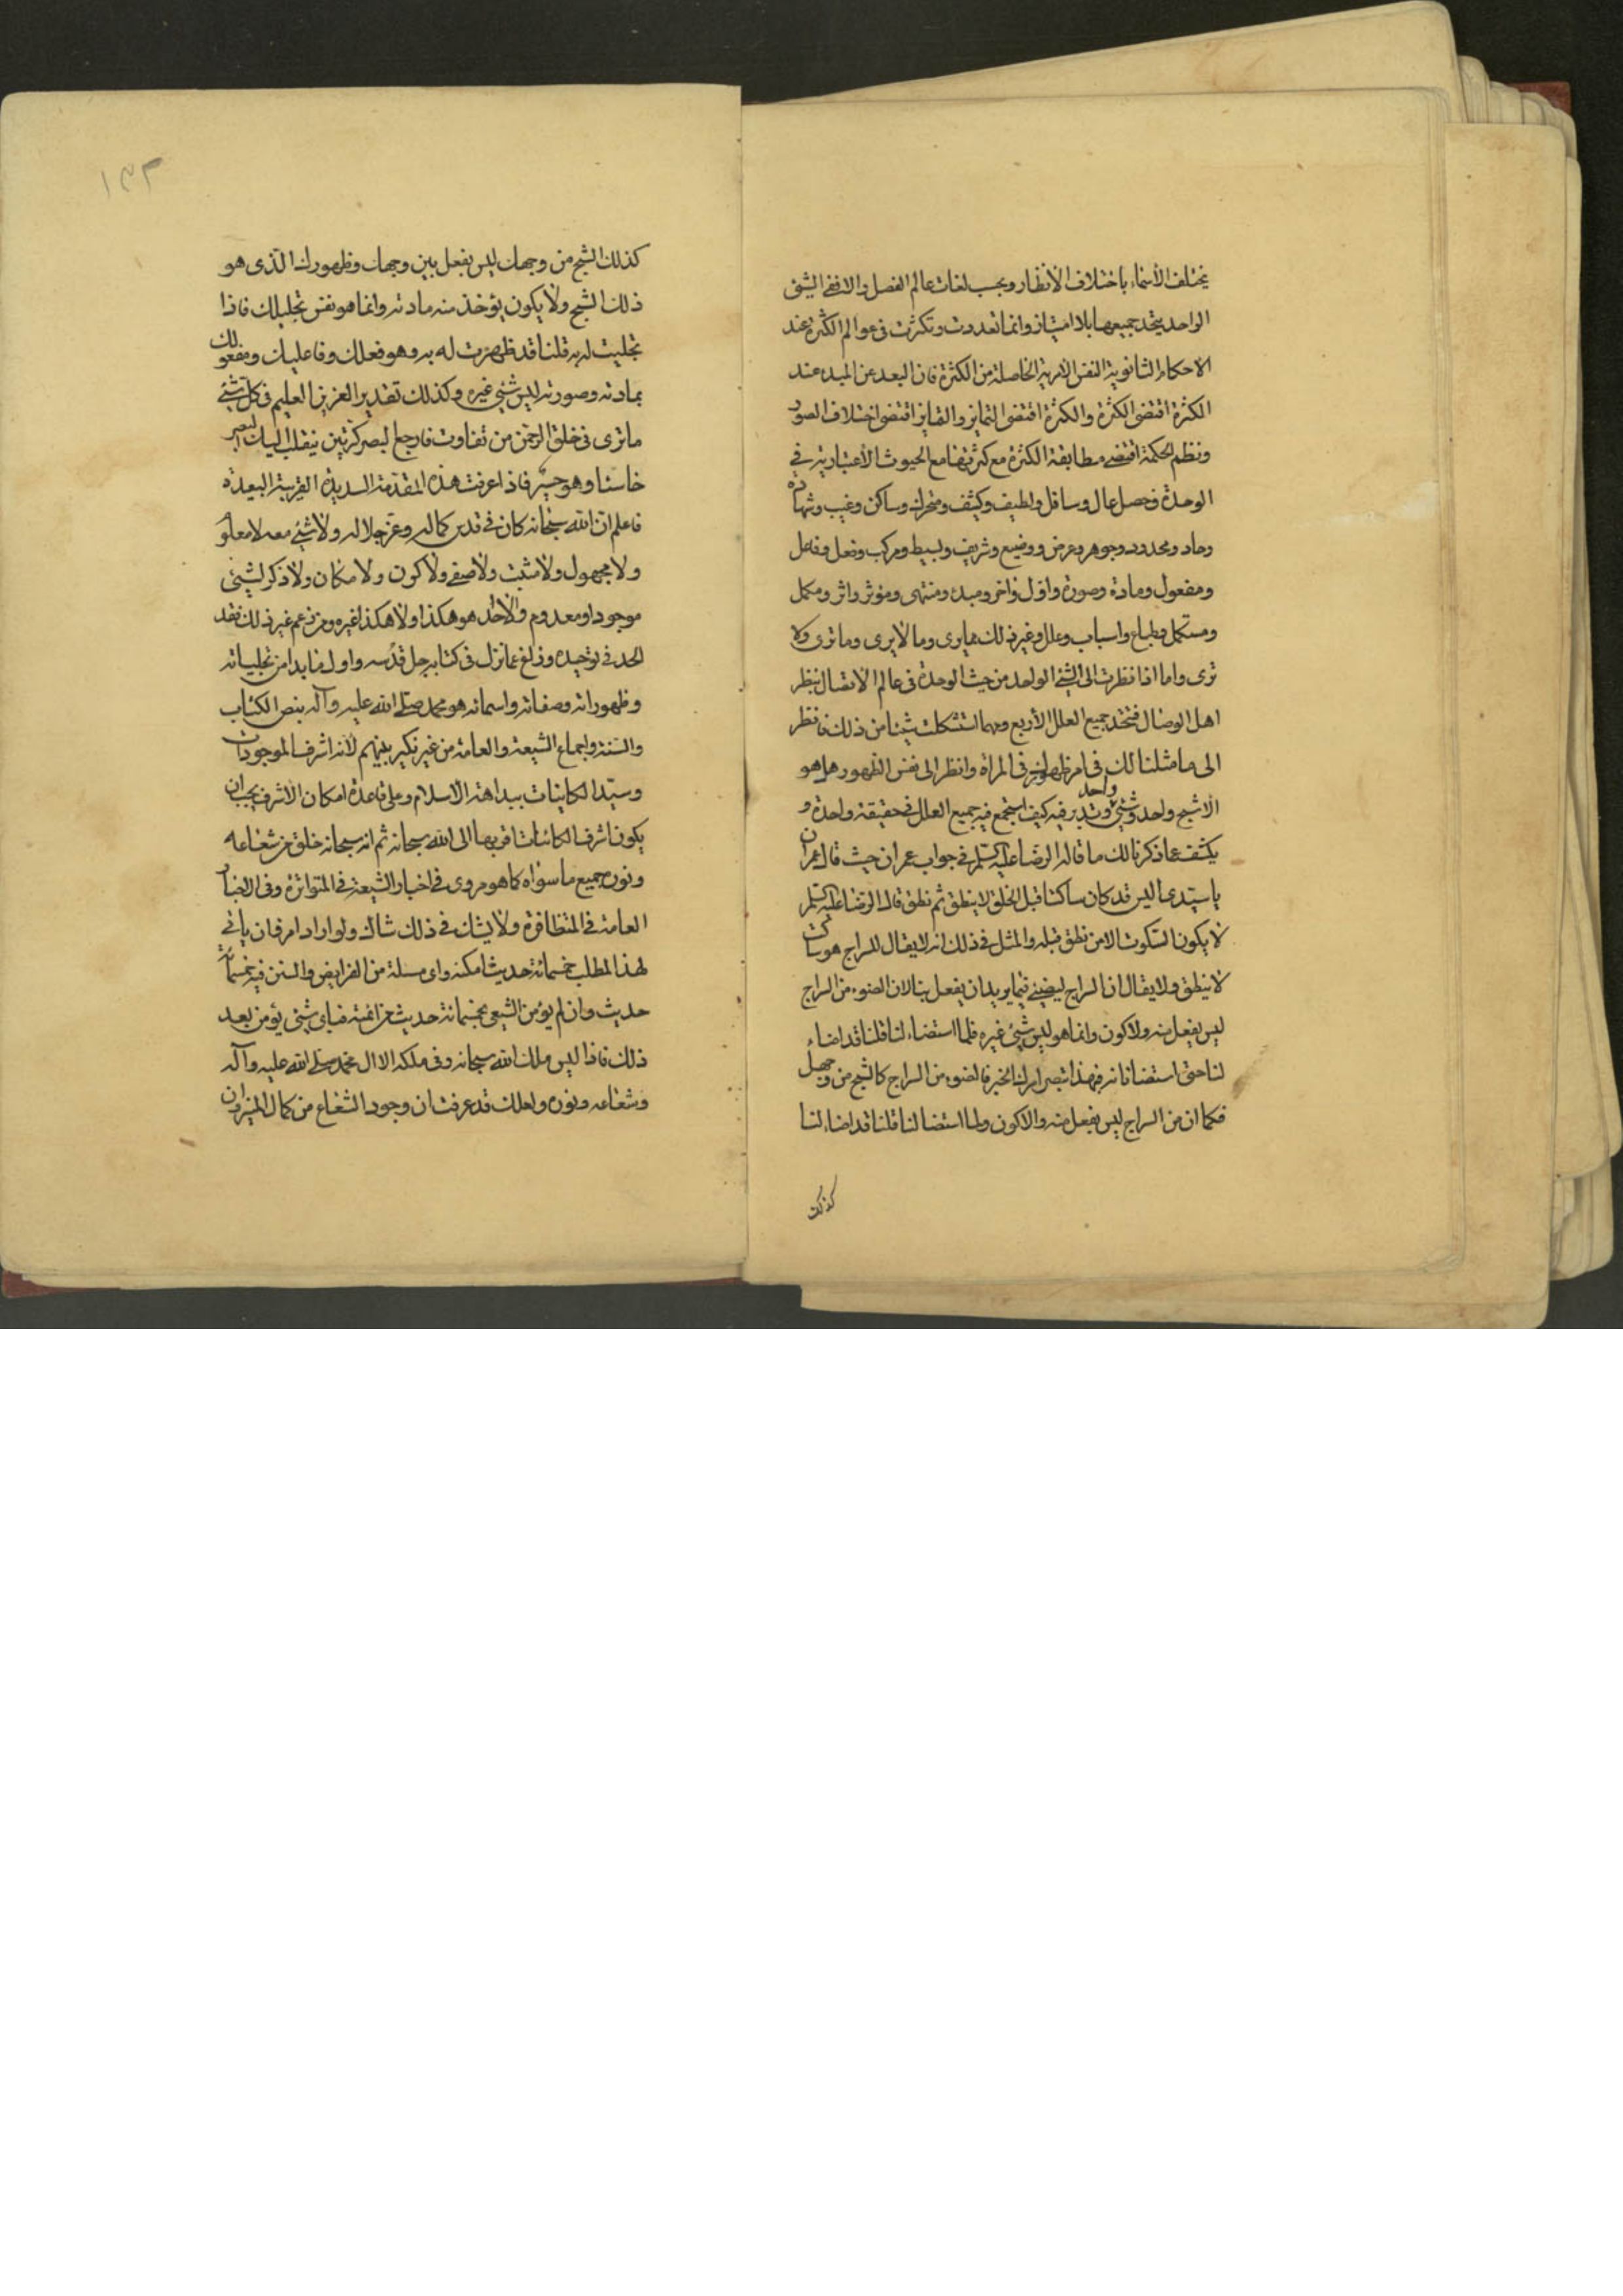 يختلف الأسماء باختلاف الأنظار وبحسب لغات عالم الفصل والا ففى الشئ
الواحد يتحد جميعها بلا امتياز وانما تعددت وتكثرت فى عوالم الكثرة عند
الاحكام الثانوية النفس الامرية الحاصلة من الكثرة فان البعد عن المبدء عند
الكثرة اقتضى الكثرة والكثرة اقتضى التمايز والتمايز اقتضى اختلاف الصور
ونظم الحكمة اقتضى مطابقة الكثرة مع كثرتها مع الحيوث الأعتبارية فى
الوحدة فحصل عال وسافل ولطيف وكثيف ومتحرك وساكن وغيب وشهادة
وحاد ومحدود وجوهر وعرض ووضيع وشريف وبسيط ومركب وفعل وفاعل
ومفعول ومادة وصورة واول واخر ومبدء ومنتهى ومؤثر واثر ومكمل
ومستكمل وطبايع واسباب وعلل وغير ذلك مما يرى وما لا يرى وما ترى ولا
ترى واما اذا نظرت الى الشئ الواحد من حيث الوحدة فى عالم الاتصال بنظر
اهل الوصال فتحد جميع العلل الأربع ومهما استشكلت شيئا من ذلك فانظر
الى ما مثلنا لك فى امر ظهورك فى المرأة وانظر الى نفس الظهور هل هو
الا شبح واحد وشئ واحد وتدبر فيه كيف اجتمع فيه جميع العلل فى حقيقة واحدة و
يكشف عما ذكرنا لك ما قاله الرضا عليه السلم فى جواب عمران حيث قال عمران
يا سيدى اليس قد كان ساكتا قبل الخلق لا ينطق ثم نطق قال الرضا عليه السلم
لا يكون السكوت الا من نطق قبله والمثل فى ذلك انه لا يقال للسراج هو ساكت
لا ينطق ولا يقال ان السراج ليضيئ فيما يريد ان يفعل بنا لان الضوء من السراج
ليس بفعل منه ولا كون وانما هو ليس شئ غيره فلما استضاء لنا قلنا قد اضاء
لنا حتى استضانا به فبهذا تبصر امرك الخبر فالضوء من السراج كالشبح من وجهك
فكما ان من السراج ليس بفعل منه والا كون ولما استضا لنا قلنا قد اضاء لنا
كذلك
١٣٣
كذلك الشبح من وجهك ليس بفعل بين وجهك وظهورك الذى هو
ذلك الشبح ولا يكون يؤخذ منه مادته وانما هو نفس تجليك فاذا
تجليت له به قلنا قد ظهرت له به وهو فعلك وفاعليك ومفعولك
بمادته وصورته ليس شئ غيره وكذلك تقدير العزيز العليم فى كل شئ
ما ترى فى خلق الرحمن من تفاوت فارجع البصر كرتين ينقلب اليك البصر
خاسئا وهو حسير فاذا عرفت هذه المقدمة السديدة القريبة البعيدة
فاعلم ان الله سبحانه كان فى قدس كماله وعز جلاله ولا شئ معه لا معلوم
ولا مجهول ولا مثبت ولا منفى ولا كون ولا مكان ولا ذكر لشئ
موجود او معدوم والاحد هو هكذا ولا هكذا غيره ومن زعم غير ذلك فقد
الحد فى توحيده وزاغ عما نزل فى كتابه جل قدسه واول ما بدا من تجلياته
وظهوراته وصفاته واسمائه هو محمد صلى الله عليه وآله بنص الكتاب
والسنة واجماع الشيعة والعامة من غير نكير بينهم لأنه اشرف الموجودات
وسيد الكاينات ببداهة الأسلام وعلى قاعدة امكان الأشرف يجب ان
يكون اشرف الكائنات اقربها الى الله سبحانه ثم انه سبحانه خلق من شعاعه
ونوره جميع ما سواه كما هو مروى فى اخبار الشيعة فى المتواترة وفى الاخبار
العامة فى المتظافرة ولا يشك فى ذلك شاك ولو اراد امرء ان ياتى
لهذا المطلب بخمسمائة حديث امكنه واى مسئلة من الفرايض والسنن فيه خمسمائة
حديث وان لم يؤمن الشيعى بخمسمائة حديث من ائمته فباى شئ يؤمن بعد
ذلك فاذا ليس ملك الله سبحانه وفى ملكه الا ال محمد صلى الله عليه وآله
وشعاعه ونوره ولعلك قد عرفت ان وجود الشعاع من كمال المنير وان